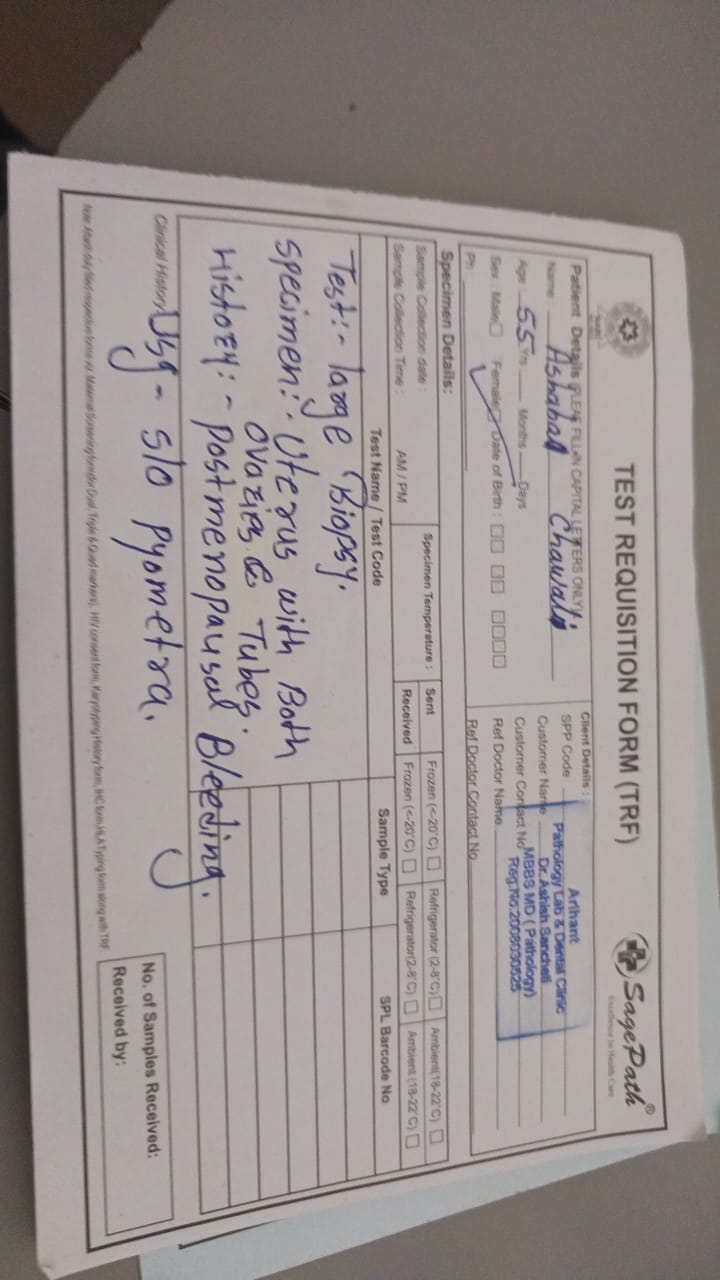 TEST REQUISITION FORM (TRF)
SagePath®
Excellence In Health Care
Patient Details (PLEASE FILL IN CAPITAL LETTERS ONLY):
Name: Chawali
Age: 55 Yrs Months Days
Sex: Male Female Date of Birth:
Ph:
Client Details:
SPP Code
Customer Name
Customer Contact No
Ref Doctor Name
Ref Doctor Contact No
Arihant
Pathology Lab & Dental Clinic
Dr. Ashish Sancheti
MBBS MD (Pathology)
Reg.No.2008030525
Specimen Details:
Sample Collection date:
Sample Collection Time: AM / PM
Specimen Temperature:
Sent Frozen (<-20°C) Refrigerator (2-8°C) Ambient(18-22°C)
Received Frozen (<-20°C) Refrigerator(2-8°C) Ambient (18-22°C)
Test Name / Test Code Sample Type SPL Barcode No
Test:- large Biopsy.
Specimen:- Uterus with Both
ovaries & Tubes.
History:- Postmenopausal Bleeding.
Clinical History Usg - s/o pyometra.
No. of Samples Received:
Received by: